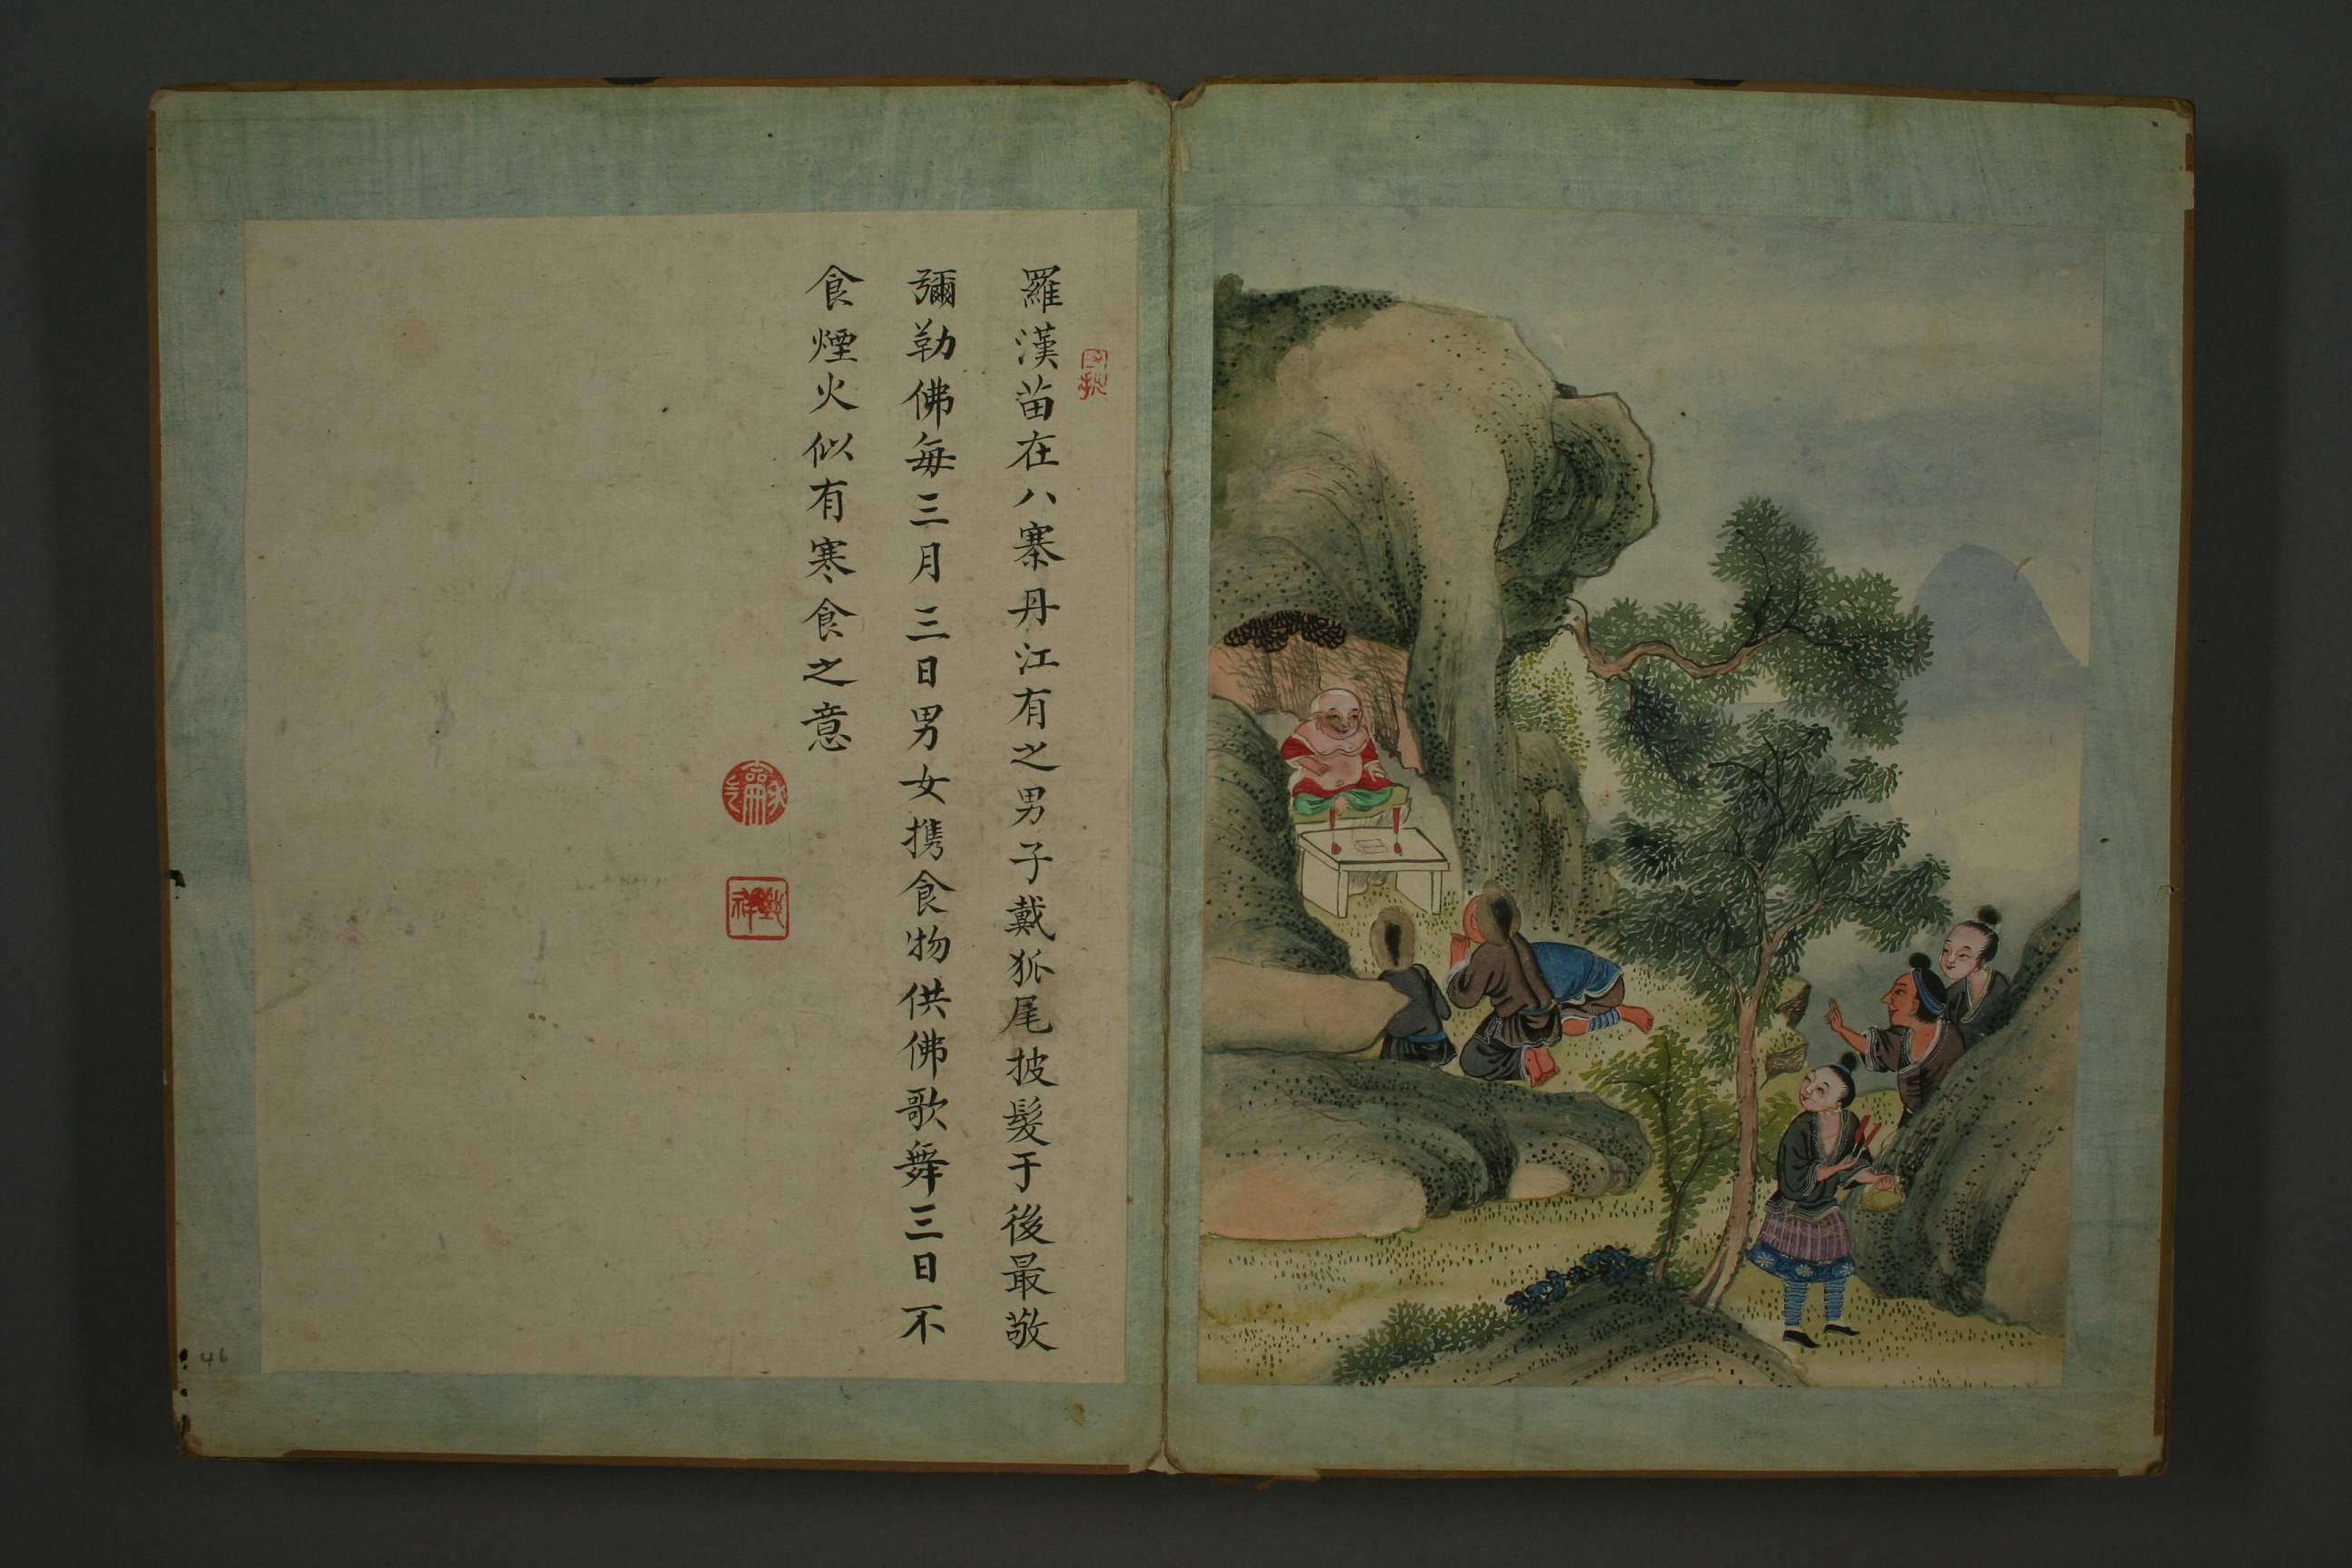 羅漢苗在八寨丹江有之男子戴狐尾披髮于後最敬
彌勒佛每三月三日男女攜食物供佛歌舞三日不
食煙火似有寒食之意
46